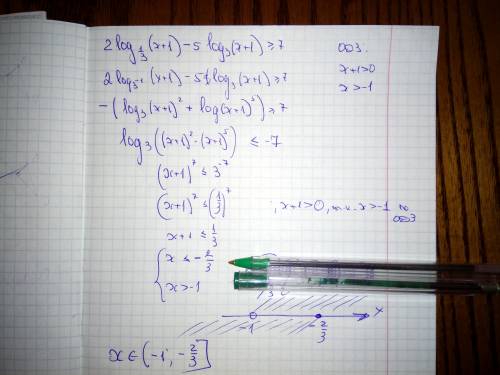 2 log_{1/3} (x+1) - 5 log₃ (x+1) ≥ 7
ОДЗ.
2 log_{3⁻¹} (x+1) - 5 log₃ (x+1) ≥ 7
x+1>0
x>-1
-(log₃ (x+1)² + log (x+1)⁵) ≥ 7
log₃ ((x+1)²·(x+1)⁵) ≤ -7
(x+1)⁷ ≤ 3⁻⁷
(x+1)⁷ ≤ (1/3)⁷ ; x+1>0, т.к. x>-1 по ОДЗ
x+1 ≤ 1/3
{ x ≤ -2/3
x>-1
-1 -2/3 x
x ∈ (-1; -2/3]